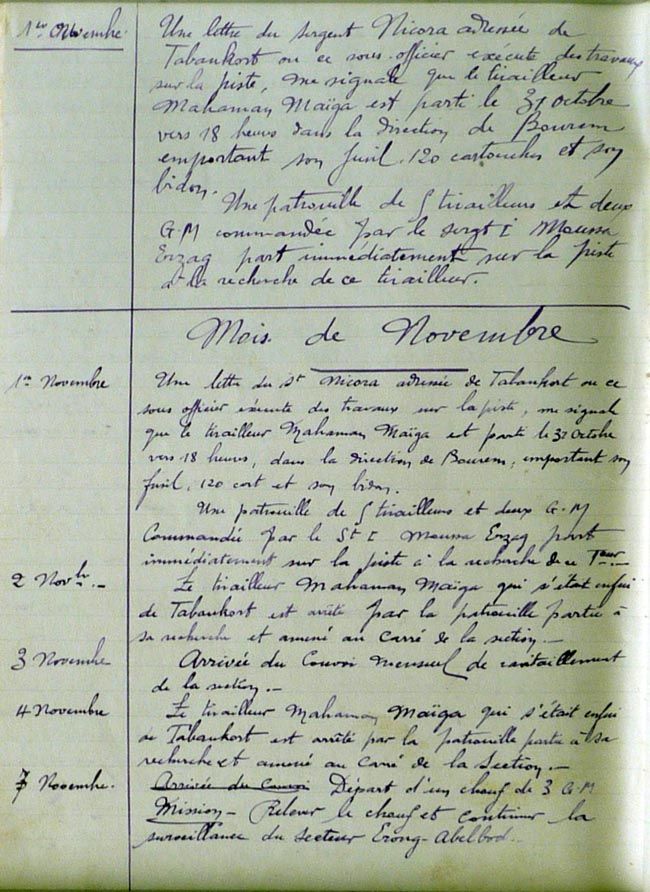 1er Novembre. Une lettre du sergent Nicora adressée de
Tabankort ou ce sous-officier exécute des travaux
sur la piste, me signale que le tirailleur
Mahaman Maïga est parti le 31 octobre
vers 18 heures dans la direction de Bourem
emportant son fusil. 120 cartouches et son
bidon.
Une patrouille de 5 tirailleurs et deux
G.M commandée par le sergt I Moussa
Erzag part immédiatement sur la piste
à la recherche de ce tirailleur.
Mois de Novembre
1er Novembre Une lettre du St Nicora adressée de Tabankort ou ce
sous officier exécute des travaux sur la piste, me signale
que le tirailleur Mahaman Maïga est parti le 31 Octobre
vers 18 heures, dans la direction de Bourem, emportant son
fusil, 120 cart et son bidon.
Une patrouille de 5 tirailleurs et deux G.M
Commandée par le St I Moussa Erzag part
immédiatement sur la piste à la recherche de ce Teur
2 Novbre.- Le tirailleur Mahaman Maïga qui s'était enfui
de Tabankort est arrêté par la patrouille partie à
sa recherche et amené au carré de la section.-
3 Novembre Arrivée du Convoi mensuel de ravitaillement
de la section.-
4 Novembre Le tirailleur Mahaman Maïga qui s'était enfui
de Tabankort est arrêté par la patrouille partie à sa
recherche et amené au Carré de la Section.-
7 Novembre. Arrivée du convoi Départ d'un chouf de 3 G.M
Mission - Relever le chouf et continuer la
surveillance du secteur Erong-Abelbod.